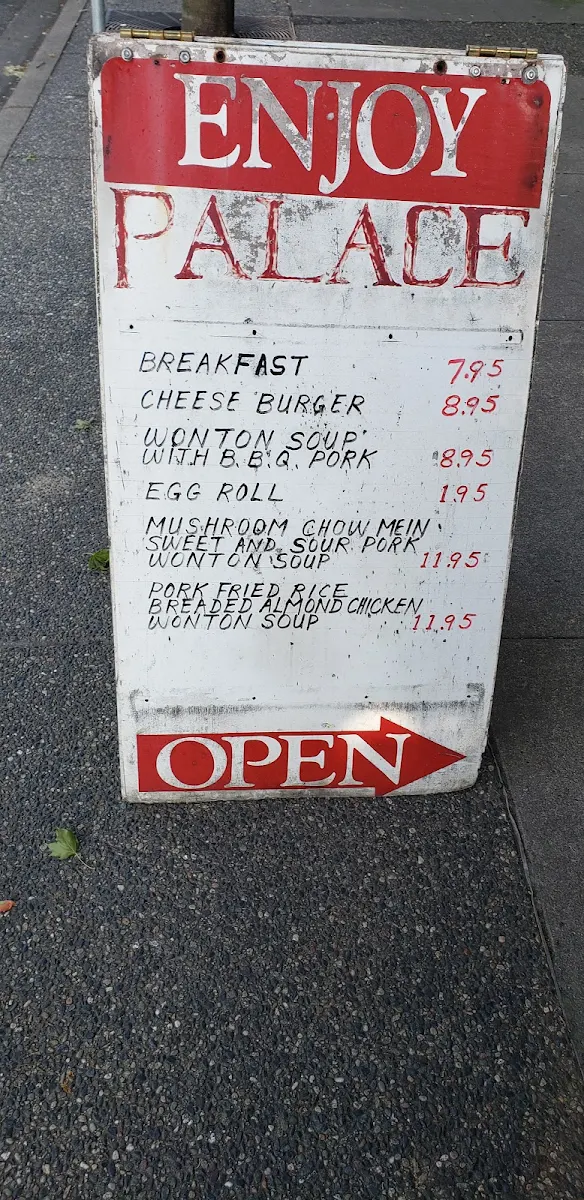 ENJOY
PALACE
BREAKFAST 7.95
CHEESE BURGER 8.95
WONTON SOUP
WITH B.B.Q. PORK 8.95
EGG ROLL 1.95
MUSHROOM CHOW MEIN
SWEET AND SOUR PORK
WONTON SOUP 11.95
PORK FRIED RICE
BREADED ALMOND CHICKEN
WONTON SOUP 11.95
OPEN